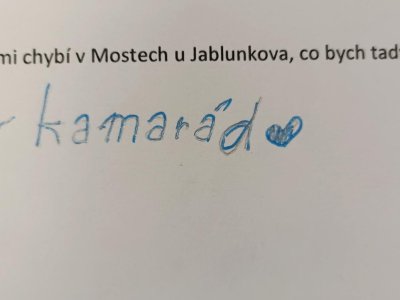 mi chybí v Mostech u Jablunkova, co bych tad
kamarád